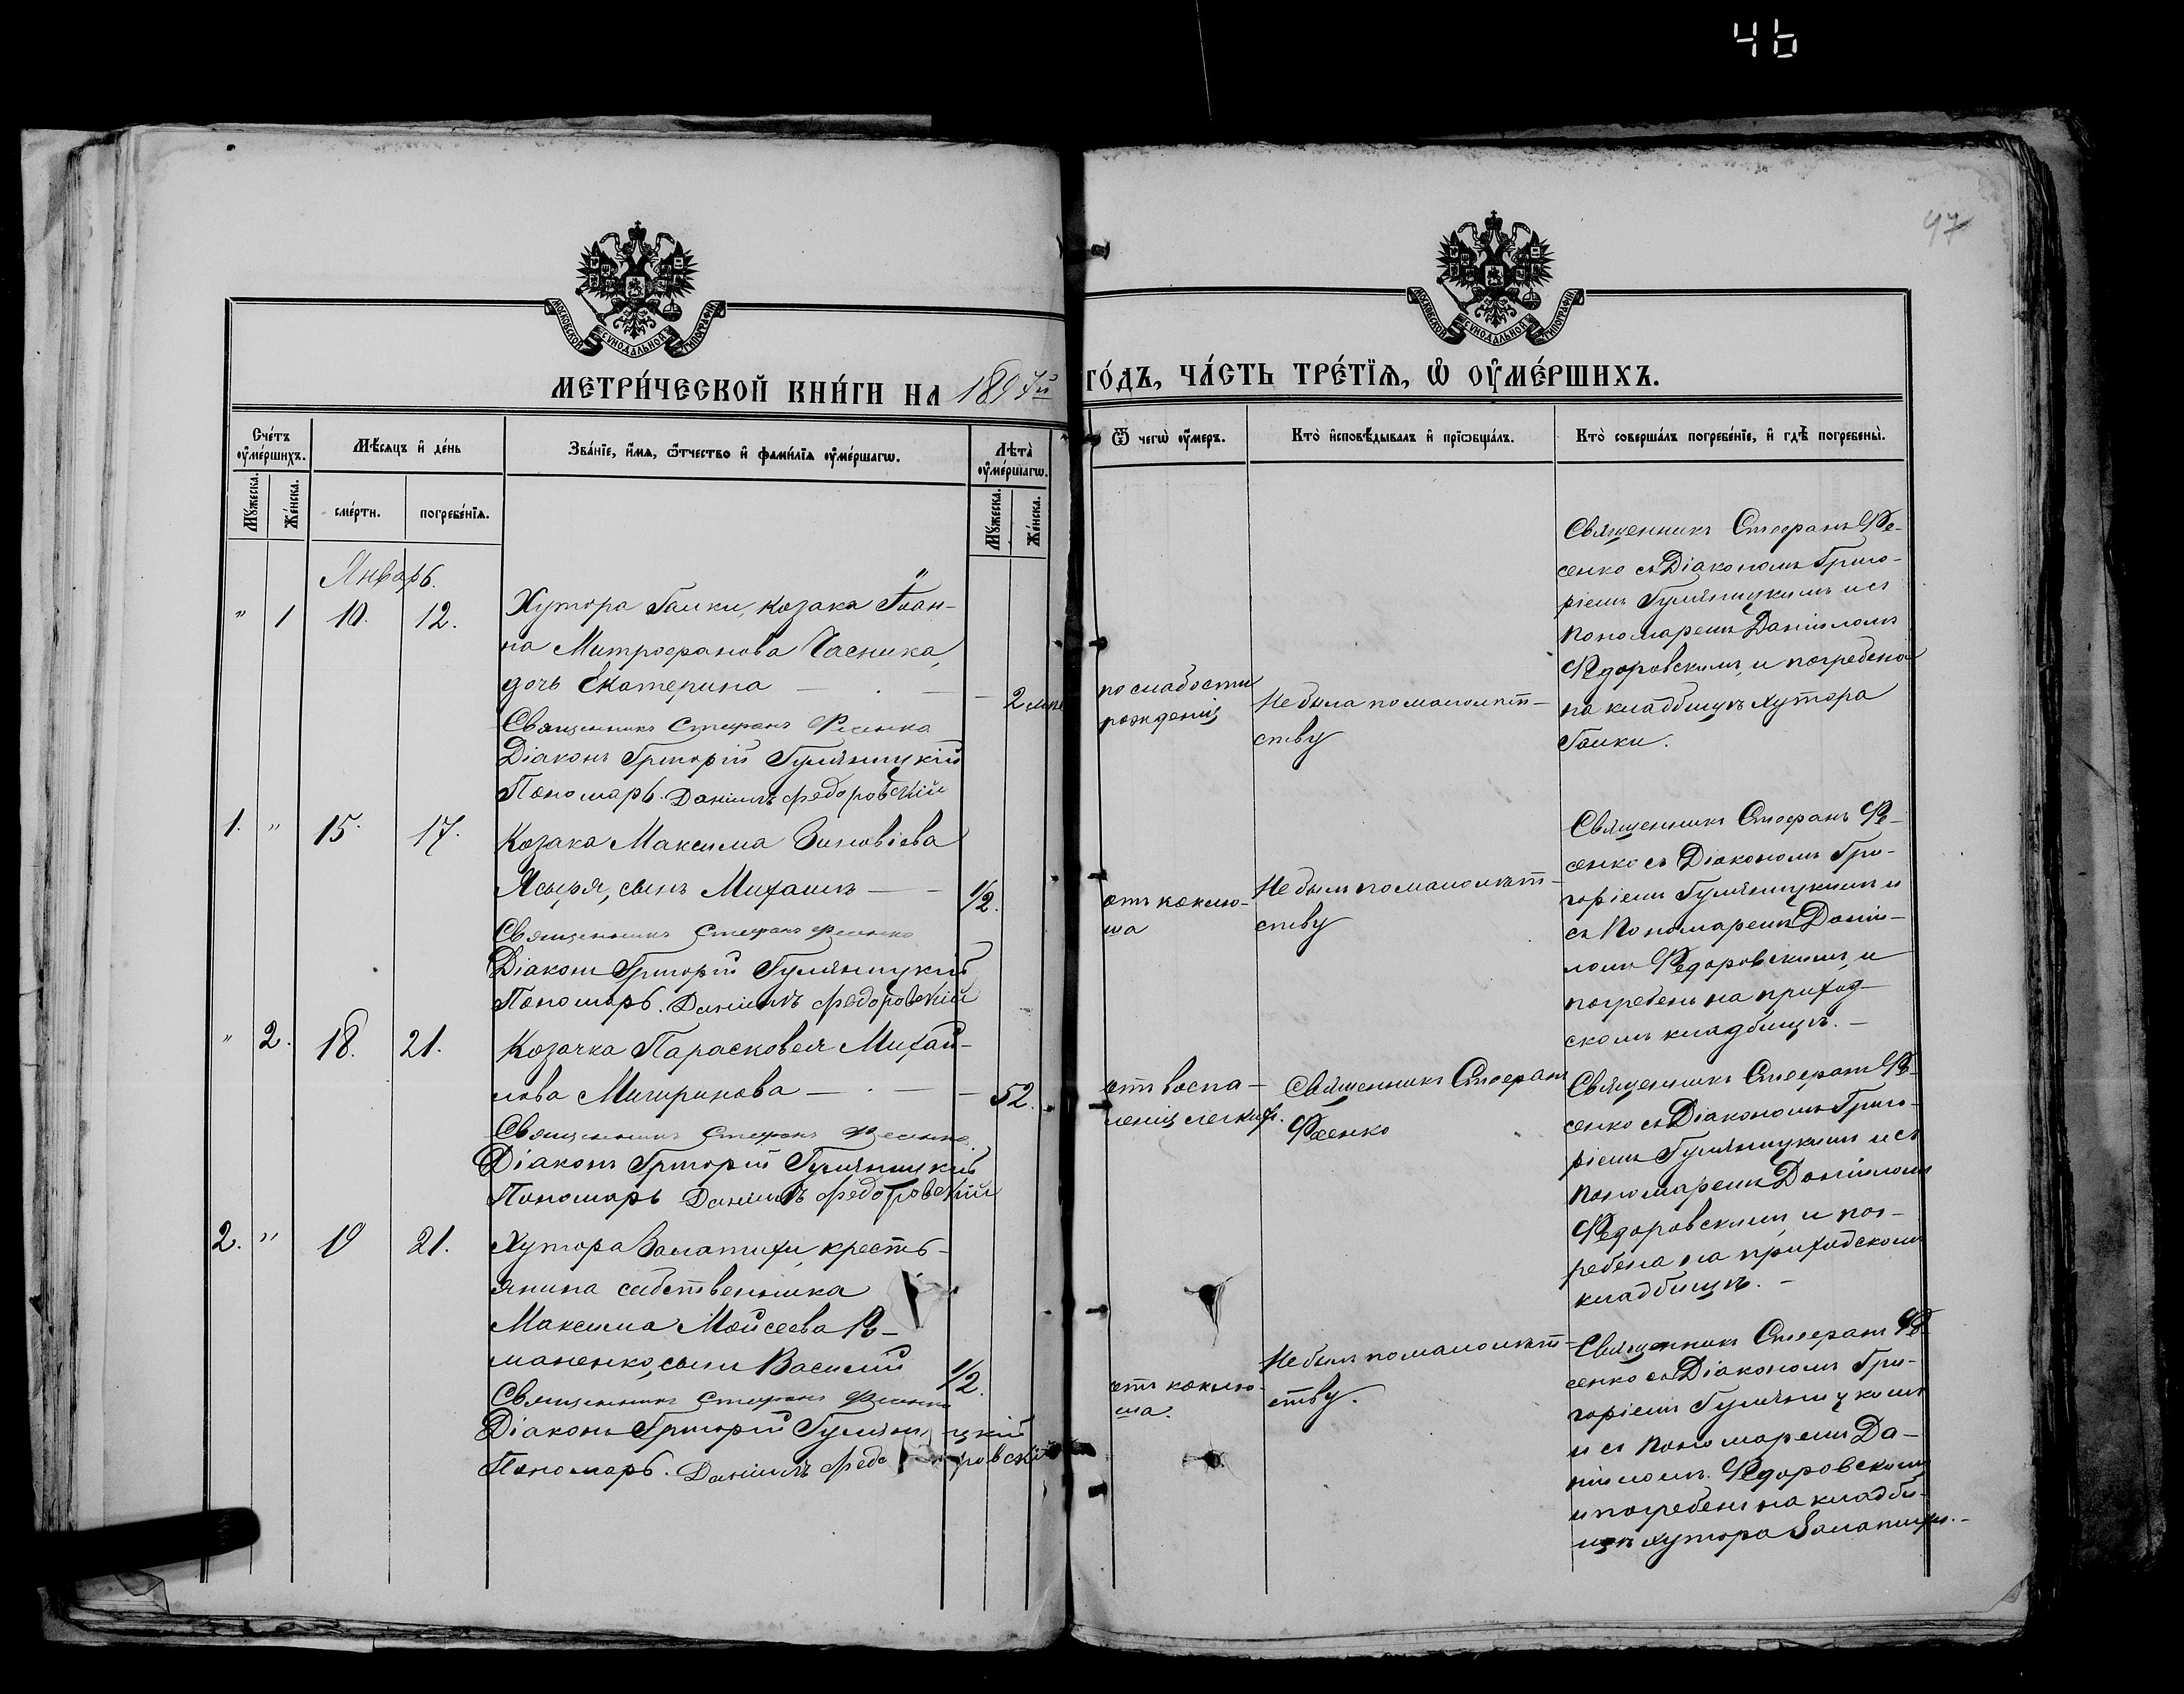 46
97
МОСКОВСКОЙ СѴНОДАЛЬНОЙ ТИПОГРАФІИ
МОСКОВСКОЙ СѴНОДАЛЬНОЙ ТИПОГРАФІИ
МЕТРИ́ЧЕСКОЙ КНИ́ГИ НА 1897й ГО́ДЪ, ЧА́СТЬ ТРЕ́ТІѦ, Ѡ ОУМЕ́РШИХЪ.
Сче́тъ оумéршихъ.
Мужеска. Же́нска.
Мѣ́сяцъ и де́нь
сме́рти. погребе́нїѧ.
Зва́нїе, и́мѧ, ѻ҆́тчество и фами́лїѧ оумéршагѡ.
Лѣта̀ оумéршагѡ.
Мужеска. Же́нска.
Ѿ чегѡ̀ оу́меръ.
Кто̀ и҆сповѣ́дывалъ и прїѡбща́лъ.
Кто̀ соверша́лъ погребе́нїе, и гдѣ̀ погребены̀.
Январь.
" 1 10. 12.
Хутора Гальки, козака Іоан-
на Митрофанова Часника,
дочь Екатерина — 2 мѣс
Священникъ Стефанъ Фесенко
Діаконъ Григорій Гуляницкій
Пономарь. Даніилъ Федоровскій
по слабости
рожденія
Не была по малолѣт-
ству
Священникъ Стефанъ Фе-
сенко съ Діакономъ Григо-
ріемъ Гуляницкимъ и съ
пономаремъ Даніиломъ
Федоровскимъ, и погребена
на кладбищѣ хутора
Гальки.
1. " 15. 17.
Козака Максима Зиновіева
сынъ Михаилъ — 1/2.
Священникъ Стефанъ Фесенко
Діаконъ Григорій Гуляницкій
Пономарь. Даніилъ Федоровскій
отъ коклю-
ша
Не былъ по малолѣт-
ству
Священникъ Стефанъ Фе-
сенко съ Діакономъ Гри-
горіемъ Гуляницкимъ и
съ Пономаремъ Даніи-
ломъ Федоровскимъ, и
погребенъ на приход-
скомъ кладбищѣ. —
" 2. 18. 21.
Козачка Парасковея Михай-
лова — 52.
Священникъ Стефанъ Фесенко
Діаконъ Григорій Гуляницкій
Пономарь Даніилъ Федоровскій
отъ воспа-
ленія легкихъ.
Священникъ Стефанъ
Фесенко
Священникъ Стефанъ Фе-
сенко съ Діакономъ Григо-
ріемъ Гуляницкимъ и съ
Пономаремъ Даніиломъ
Федоровскимъ и пог-
ребена на приходскомъ
кладбищѣ. —
2. " 19 21.
Хутора кресть-
янина собственника
Максима Мойсеева Ро-
маненко, сынъ Василій 1/2.
Священникъ Стефанъ Фесенко
Діаконъ Григорій Гуляницкій
Пономарь. Даніилъ Федоровскій
отъ коклю-
ша.
Не былъ по малолѣт-
ству.
Священникъ Стефанъ Фе-
сенко съ Діакономъ Гри-
горіемъ Гуляницкимъ
и съ Пономаремъ Да-
ніиломъ Федоровскимъ
и погребенъ на кладби-
щѣ хутора